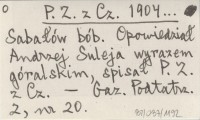 P. Z. z Cz. 1904...
Sabałów bób. Opowiedział
Andrzej Suleja wyrazem
góralskim, spisał P. Z.
z Cz. — Gaz. Podtatr.
2, nr 20.